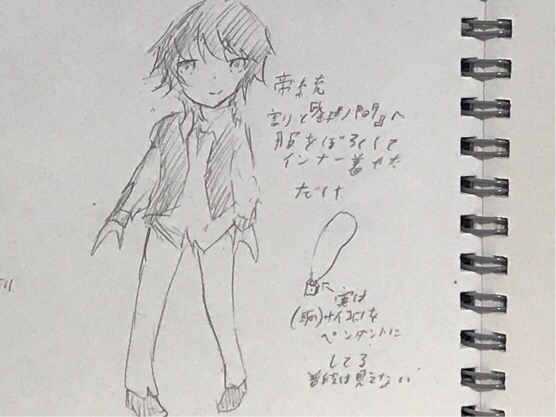 帝統
割と
服をぼろくして
インナー着せた
だけ
実は
サイコロを
ペンダントに
してる
普段は見えない